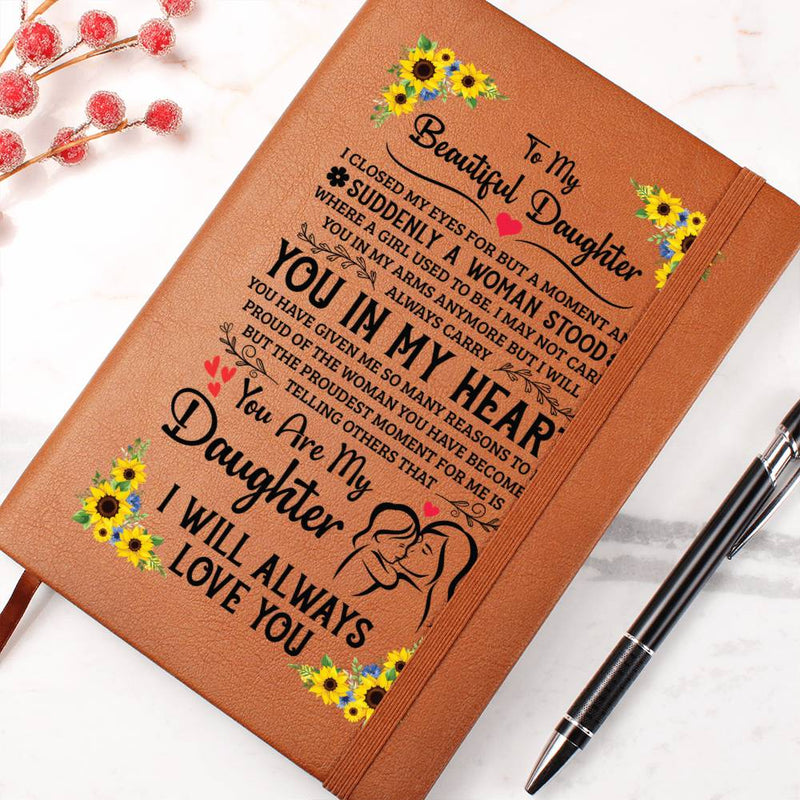 To My
Beautiful Daughter
I CLOSED MY EYES FOR BUT A MOMENT AN
SUDDENLY A WOMAN STOOD
WHERE A GIRL USED TO BE. I MAY NOT CARR
YOU IN MY ARMS ANYMORE BUT I WILL
ALWAYS CARRY
YOU IN MY HEART
YOU HAVE GIVEN ME SO MANY REASONS TO
PROUD OF THE WOMAN YOU HAVE BECOME
BUT THE PROUDEST MOMENT FOR ME IS
TELLING OTHERS THAT
You Are My
Daughter
I WILL ALWAYS
LOVE YOU